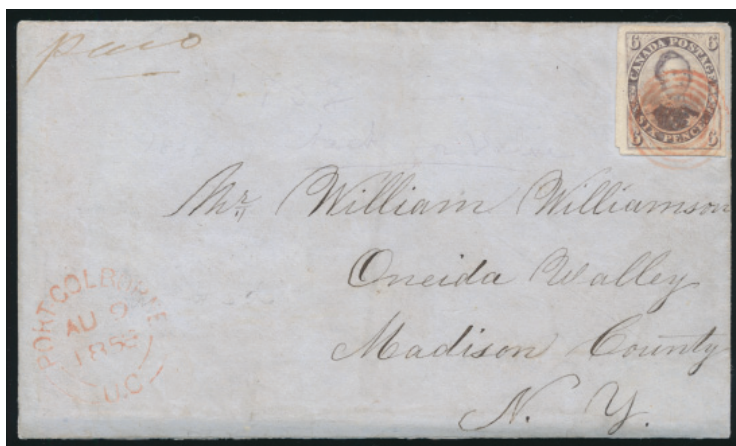 paid
6 CANADA POSTAGE 6
6 SIX PENCE 6
Mr. William Williamson
Oneida Valley
Madison County
N. Y.
PORT COLBORNE
AU 2
U.C